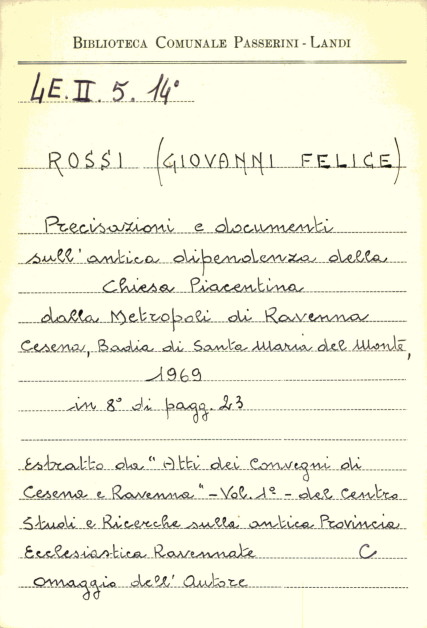 BIBLIOTECA COMUNALE PASSERINI - LANDI
4E. II. 5. 14°
ROSSI (GIOVANNI FELICE)
Precisazioni e documenti
sull'antica dipendenza della
Chiesa Piacentina
dalla Metropoli di Ravenna
Cesena, Badia di Santa Maria del Monte,
1969
in 8° di pagg. 23
Estratto da "Atti dei Convegni di
Cesena e Ravenna" - Vol. 1° - del Centro
Studi e Ricerche sulla antica Provincia
Ecclesiastica Ravennate C
omaggio dell'Autore